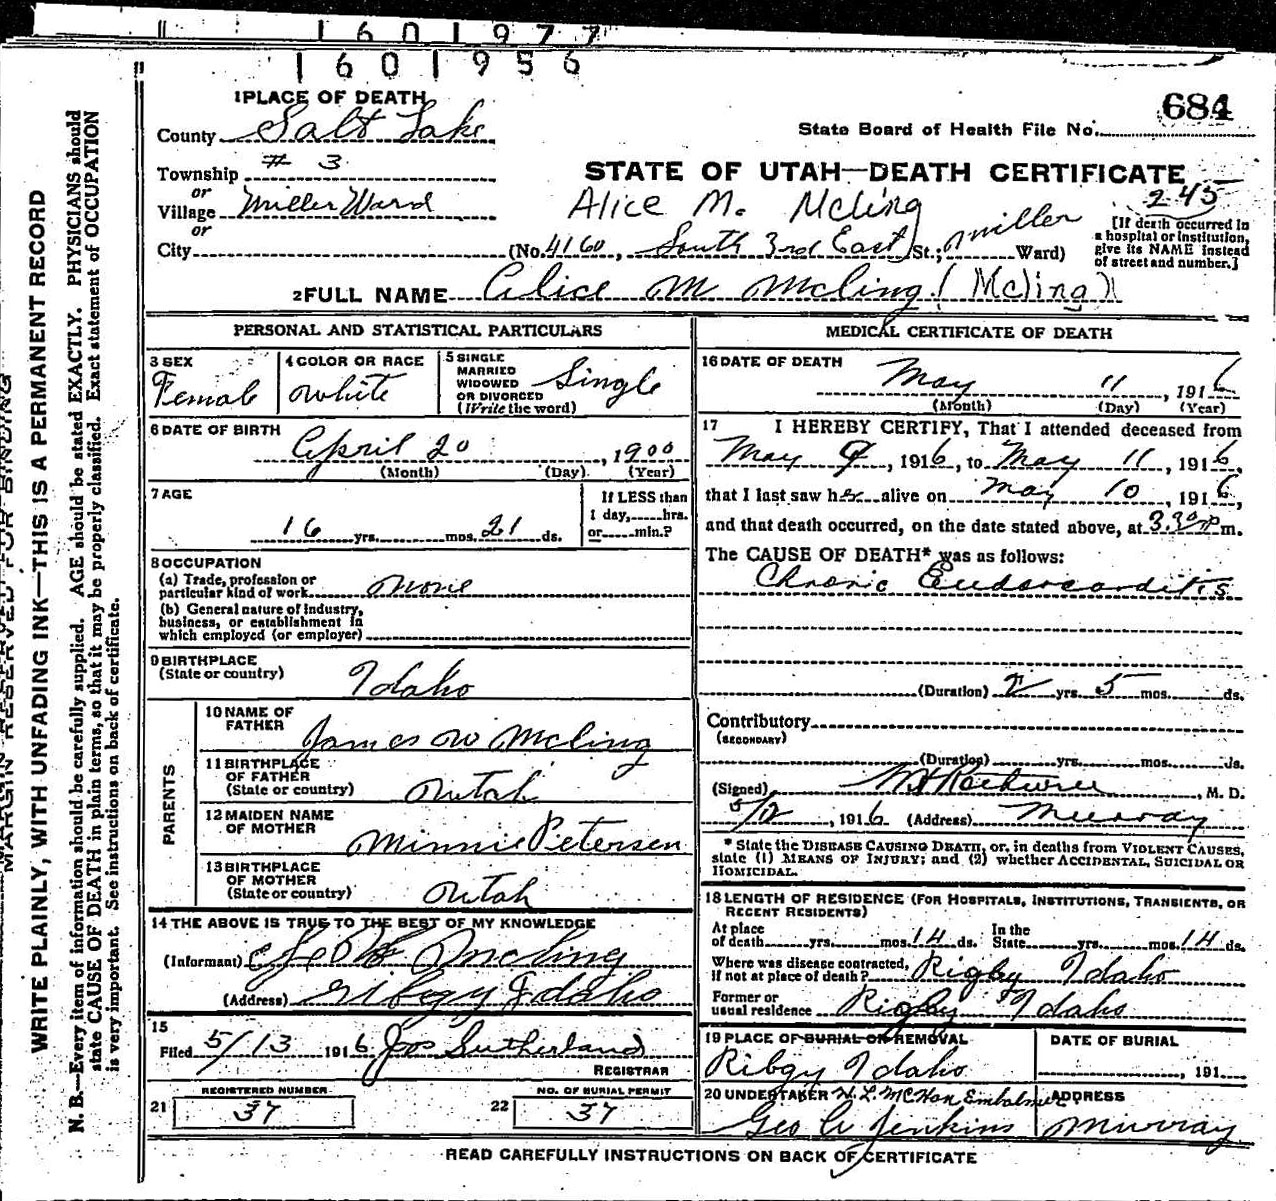 1601977
1601956
1 PLACE OF DEATH
684
County Salt Lake
State Board of Health File No.
Township # 3
STATE OF UTAH—DEATH CERTIFICATE
or
Village Miller Ward
Alice M. Mcling
245
or
City (No. 4160, South 3rd East St.; Miller Ward)
[If death occurred in
a hospital or institution,
give its NAME instead
of street and number.]
2 FULL NAME Alice M Mcling (Mcling)
PERSONAL AND STATISTICAL PARTICULARS
3 SEX
Female
4 COLOR OR RACE
White
5 SINGLE
MARRIED
WIDOWED
OR DIVORCED
(Write the word)
Single
6 DATE OF BIRTH
April 20, 1900
(Month) (Day) (Year)
7 AGE
16 yrs. mos. 21 ds.
If LESS than
1 day, hrs.
or min.?
8 OCCUPATION
(a) Trade, profession or
particular kind of work None
(b) General nature of industry,
business, or establishment in
which employed (or employer)
9 BIRTHPLACE
(State or country) Idaho
PARENTS
10 NAME OF
FATHER James W Mcling
11 BIRTHPLACE
OF FATHER
(State or country) Utah
12 MAIDEN NAME
OF MOTHER Minnie Petersen
13 BIRTHPLACE
OF MOTHER
(State or country) Utah
14 THE ABOVE IS TRUE TO THE BEST OF MY KNOWLEDGE
(Informant) Mcling
(Address) Ribgy Idaho
15
Filed 5/13 1916 Jos Sutherland
REGISTRAR
REGISTERED NUMBER
21 37
NO. OF BURIAL PERMIT
22 37
MEDICAL CERTIFICATE OF DEATH
16 DATE OF DEATH
May 11, 1916
(Month) (Day) (Year)
17 I HEREBY CERTIFY, That I attended deceased from
May 9, 1916, to May 11, 1916,
that I last saw her alive on May 10, 1916,
and that death occurred, on the date stated above, at 3.30 p m.
The CAUSE OF DEATH* was as follows:
Chronic Endorcarditis
(Duration) 2 yrs. 5 mos. ds.
Contributory
(SECONDARY)
(Duration) yrs. mos. ds.
(Signed) , M. D.
5/12, 1916 (Address) Murray
* State the DISEASE CAUSING DEATH, or, in deaths from VIOLENT CAUSES,
state (1) MEANS OF INJURY; and (2) whether ACCIDENTAL, SUICIDAL OR
HOMICIDAL.
18 LENGTH OF RESIDENCE (FOR HOSPITALS, INSTITUTIONS, TRANSIENTS, OR
RECENT RESIDENTS)
At place
of death yrs. mos. 14 ds.
In the
State yrs. mos. 14 ds.
Where was disease contracted,
if not at place of death? Rigby Idaho
Former or
usual residence Rigby Idaho
19 PLACE OF BURIAL OR REMOVAL
Ribgy Idaho
DATE OF BURIAL
, 191
20 UNDERTAKER H. L. McHan Embalmer
Geo W Jenkins
ADDRESS
Murray
READ CAREFULLY INSTRUCTIONS ON BACK OF CERTIFICATE
MARGIN RESERVED FOR BINDING
WRITE PLAINLY, WITH UNFADING INK—THIS IS A PERMANENT RECORD
N. B.—Every item of information should be carefully supplied. AGE should be stated EXACTLY. PHYSICIANS should
state CAUSE OF DEATH in plain terms, so that it may be properly classified. Exact statement of OCCUPATION
is very important. See instructions on back of certificate.